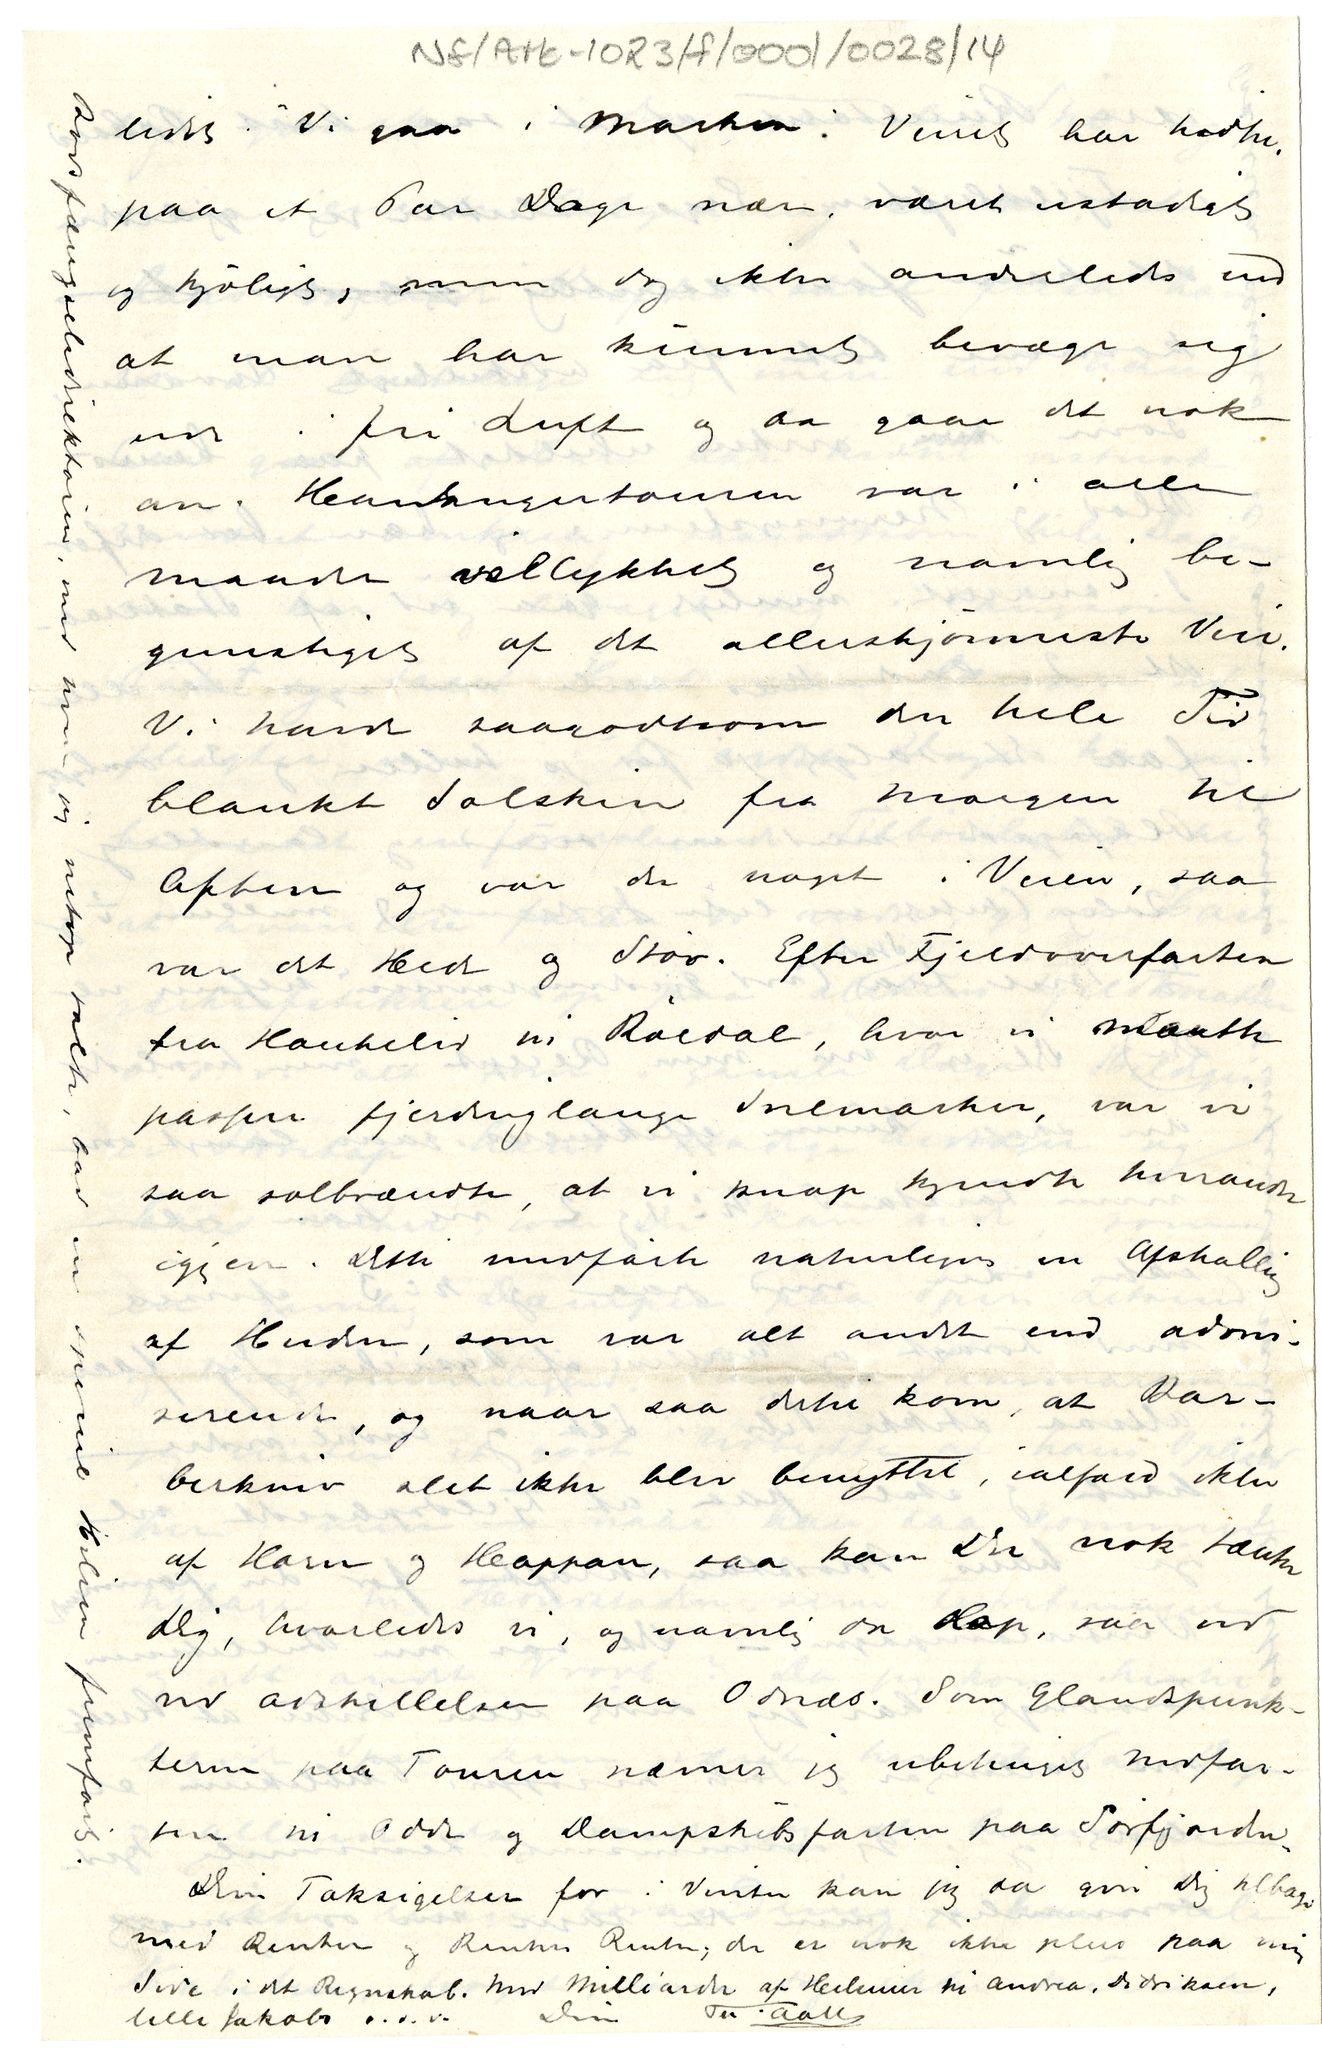 NF/Ark-1023/f/0001/0028/14
ledes". Vi gaa i Marken. Veiret har hidtil,
paa et Par Dage nær, været ustadigt
og kjøligt, men dog ikke anderledes end
at man har kunnet bevæge sig
ude i fri Luft og da gaar det nok
an. Haukangertouren var i alle
Maader vellykket og navnlig be-
gunstiget af det allerskjønneste Veir.
Vi havde saagodtsom den hele Tid
blankt Solskin fra Morgen til
Aften og var der noget i Veien, saa
var det Hede og Støv. Efter Fjeldoverfarten
fra Haukelid til Røldal, hvor vi maatte
passere fjerdinglange Snemarker, var vi
saa solbrændte, at vi knap kjendte hverandre
igjen. Dette medførte naturligvis en Afskalling
af Huden, som var alt andet end adoni-
serende, og naar saa dertil kom, at Bar-
berkniv slet ikke blev benyttet, ialfald ikke
af Horn og Heappan, saa kan Du nok tænke
Dig, hvorledes vi, og navnlig de to, saa ud
ved Adskillelsen paa Odnæs. Som Glandspunk-
terne paa Touren nævner jeg ubetinget Nedfar-
ten til Odde og Dampskibsfarten paa Sørfjorden.
Din Taksigelse for i Vinter kan jeg da give Dig tilbage
med Renter og Renters Rente; der er nok ikke plus paa min
Side i det Regnskab. Med Milliarder af Hilsener til Andrea, Didriksen,
lille Jakob o.s.v. Din Aall
Bodsfængselsdirektøren, med hvem jeg netop talte, bad en speciel Hilsen fremført.